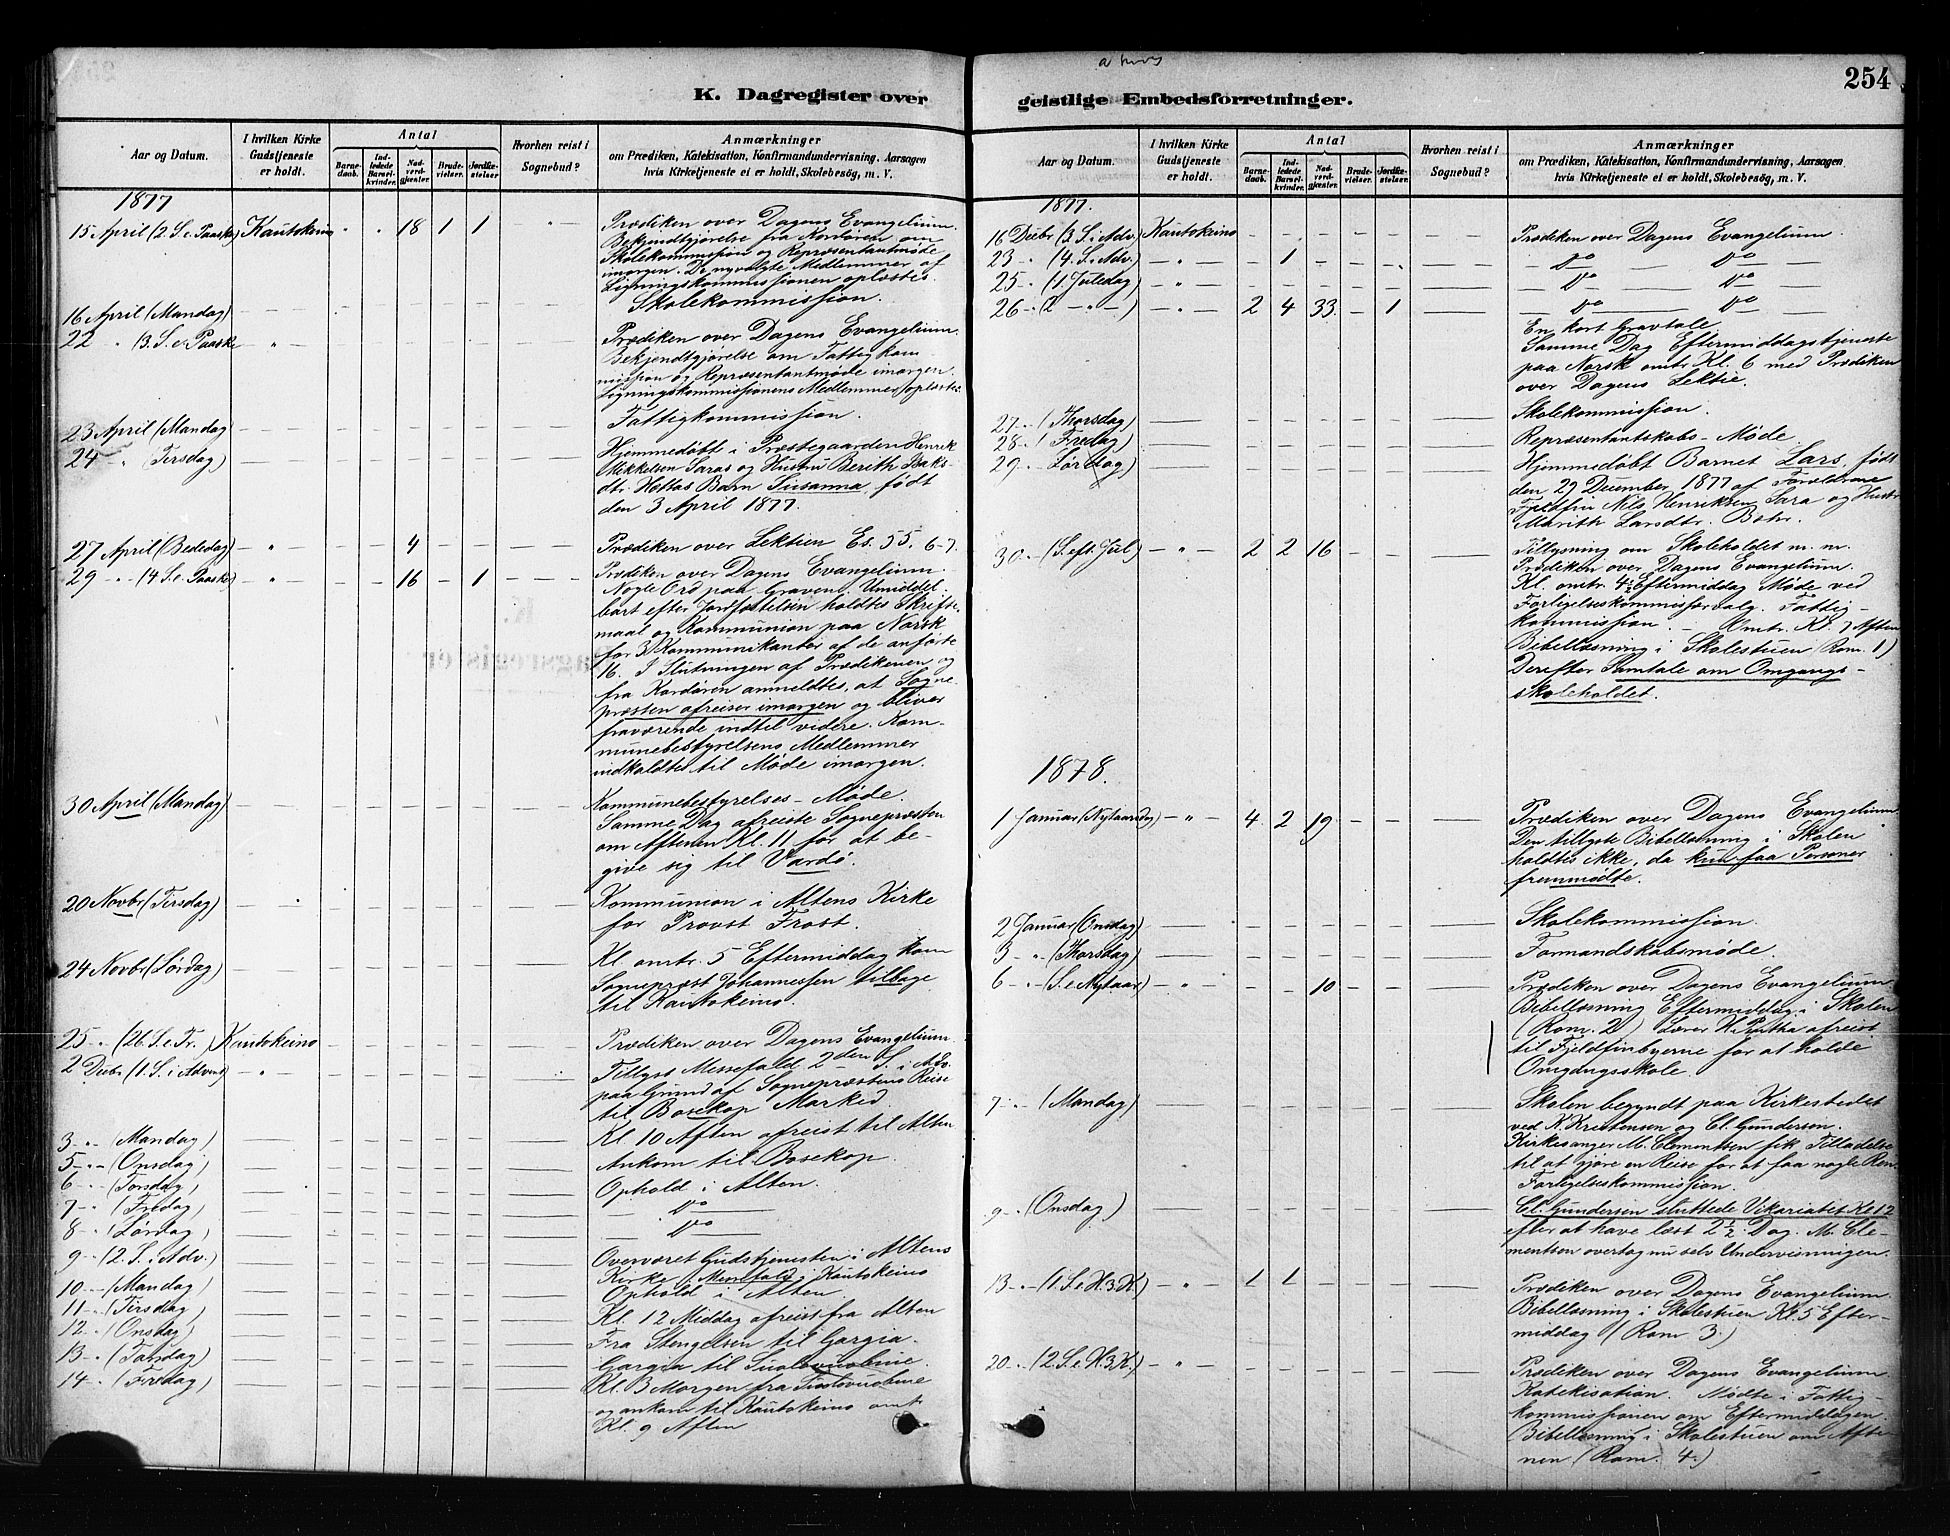 a
254
K. Dagregister over
geistlige Embedsforretninger.
Aar og Datum.
I hvilken Kirke Gudstjeneste er holdt.
Antal
Barne-daab.
Ind-ledede Barsel-kvinder.
Nad-verd-gjester.
Brude-vielser.
Jordfæ-stelser
Hvorhen reist i Sognebud?
Anmærkninger
om Prædiken, Katekisation, Konfirmandundervisning, Aarsagen
hvis Kirketjeneste ei er holdt, Skolebesøg, m. V.
1877
15 April (2 S. e. Paaske) Kautokeino " " 18 1 1 " Prædiken over Dagens Evangelium.
Bekjendtgjørelse fra Kordøren om
Skolekommission og Repræsentantmøde
imorgen. De nyvalgte Medlemmer af
Ligningskommissionen oplæstes.
16 April (Mandag) Skolekommission.
22 " (3. S. e. Paaske " Prædiken over Dagens Evangelium.
Bekjendtgjørelse om Fattigkom
mission og Repræsentantmøde imorgen.
Ligningskommissionens Medlemmer oplæstes.
23 April (Mandag) Fattigkommission.
24 " (Tirsdag) Hjemmedøbt i Præstegaarden Henrik
Mikkelsen Saras og Hustru Berith Isaks-
dtr. Hættas Barn Susanna, født
den 3 April 1877.
27 April (Bededag) " 4 Prædiken over Lektien Es. 55. 6-7.
29 " (4 S. e. Paaske) " 16 1 Prædiken over Dagens Evangelium.
Nogle Ord paa Graven. Umiddel-
bart efter Jordfæstelsen holdtes Skrifte-
maal og Kommunion paa Norsk
for 3 Kommunikanter af de anførte
16. I Slutningen af Prædikenen og
fra Kordøren anmeldtes, at Sogne-
præsten afreiser imorgen og bliver
fraværende indtil videre. Kom-
munebestyrelsens Medlemmer
indkaldtes til Møde imorgen.
30 April (Mandag) Kommunebestyrelses-Møde.
Samme Dag afreiste Sognepræsten
om Aftenen Kl. 11 for at be-
give sig til Vardø.
20 Novbr (Tirsdag) Kommunion i Altens Kirke
for Provst Frost.
24 Novbr (Lørdag) Kl. omtr. 5 Eftermiddag kom
Sognepræst Johannessen tilbage
til Kautokeino.
25 " (26. S. e. Tr.) Kautokeino Prædiken over Dagens Evangelium.
2 Decbr (1. S. i Advent) " Tillyst Messefald 2den S. i Adv.
paa Grund af Sognepræstens Reise
til Bosekop Marked.
3 " (Mandag) Kl. 10 Aften afreist til Alten
5 " (Onsdag) Ankom til Bosekop.
6 " (Torsdag) Ophold i Alten.
7 " (Fredag) Do
8 " (Lørdag) Do
9 " (2. S. i Adv.) Overværet Gudstjenesten i Altens
Kirke. Messefald i Kautokeino
10 " (Mandag) Ophold i Alten.
11 " (Tirsdag) Kl. 12 Middag afreist fra Alten
12 " (Onsdag) Fra Stengelsen til Gargia.
13 " (Torsdag) Gargia til Suolovuobme.
14 " (Fredag) Kl. 3 Morgen fra Suolovuobme
og ankom til Kautokeino omt.
Kl. 9 Aften
Aar og Datum.
I hvilken Kirke Gudstjeneste er holdt.
Antal
Barne-daab.
Ind-ledede Barsel-kvinder.
Nad-verd-gjester.
Brude-vielser.
Jordfæ-stelser
Hvorhen reist i Sognebud?
Anmærkninger
om Prædiken, Katekisation, Konfirmandundervisning, Aarsagen
hvis Kirketjeneste ei er holdt, Skolebesøg, m. V.
1877.
16 Decbr (3 S. i Adv) Kautokeino Prædiken over Dagens Evangelium.
23 " (4. S. i Adv.) " 1 Do Do
25 " (1. Juledag) " Do Do
26 " (2 — " —) " 2 4 33 1 Do Do
En kort Gravtale.
Samme Dag Eftermiddagstjeneste
paa Norsk omtr. Kl. 6 med Prædiken
over Dagens Lektie.
27 " (Thorsdag) Skolekommission.
28 " (Fredag) Repræsentantskabs-Møde.
29 " Lørdag) Hjemmedøbt Barnet Lars, født
den 29 December 1877 af Forældrene
Fjeldfin Nils Henriksen Sara og Hustr
Marith Larsdtr. Bohr.
30 " (S. eft. Jul) " 2 2 16 Tillysning om Skoleholdet m. m.
Prædiken over Dagens Evangelium.
Kl. omtr. 4½ Eftermiddag Møde ved
Forligelseskommissærvalg. Fattig-
kommission. — Omtr. Kl. 7 Aften
Bibellæsning i Skolestuen (Rom. 1)
Derefter Samtale om Omgangs-
skoleholdet.
1878.
1 Januar (Nytaarsdag) " 4 2 19 Prædiken over Dagens Evangelium
Den tillyste Bibellæsning i Skolen
holdtes ikke, da kun faa Personer
fremmødte.
2 Januar (Onsdag) Skolekommission.
3 " (Thorsdag) Formandskabsmøde.
6 " (S. e. Nytaar) " 10 Prædiken over Dagens Evangelium
Bibellæsning Eftermiddag i Skolen
(Rom. 2) Lærer H. afreist
til Fjeldfinbyerne for at holde
Omgangsskole.
7 " (Mandag) Skolen begyndt paa Kirkestedet
ved K. Kristensen og Cl. Gundersen.
Kirkesanger M. Clemmtsen fik Tilladelse
til at gjøre en Reise for at faa nogle Ren
Forligelseskommission.
9 " (Onsdag) Cl. Gundersen sluttede Vikariatet Kl. 12
efter at have læst 2½ Dag. M. Cle-
mentsen overtog nu selv Undervisningen.
13 " (1. S. e. H. 3 K.) " 1 1 Prædiken over Dagens Evangelium.
Bibellæsning i Skolestuen Kl. 5 Efter-
middag (Rom. 3.)
20 " (2. S. e. H. 3 K.) " Prædiken over Dagens Evangelium
Katekisation. Mødte i Fattig-
kommissionen om Eftermiddagen.
Bibellæsning i Skolestuen om Afte-
nen (Rom. 4.)